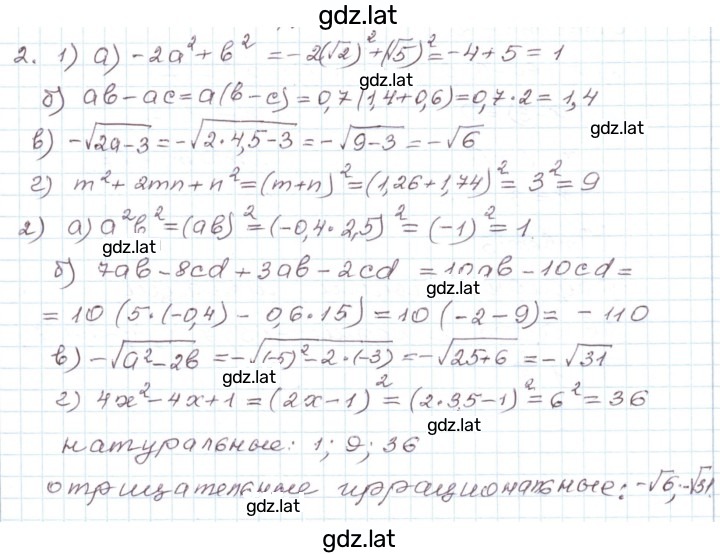 gdz.lat
2. 1) а) -2a² + b² = -2(√2)² + (√5)² = -4 + 5 = 1
gdz.lat
б) ab - ac = a(b - c) = 0,7(1,4 + 0,6) = 0,7 · 2 = 1,4
gdz.lat
в) -√(2a-3) = -√(2 · 4,5 - 3) = -√(9-3) = -√6
г) m² + 2mn + n² = (m+n)² = (1,26 + 1,74)² = 3² = 9
2) а) a²b² = (ab)² = (-0,4 · 2,5)² = (-1)² = 1.
gdz.lat
б) 7ab - 8cd + 3ab - 2cd = 10ab - 10cd =
gdz.lat
= 10 (5 · (-0,4) - 0,6 · 15) = 10 (-2 - 9) = - 110
в) -√(a² - 2b) = -√((-5)² - 2 · (-3)) = -√(25+6) = -√31
gdz.lat
г) 4x² - 4x + 1 = (2x - 1)² = (2 · 3,5 - 1)² = 6² = 36
gdz.lat
натуральные: 1; 9; 36
отрицательные иррациональные: -√6; -√31.
gdz.lat
gdz.lat